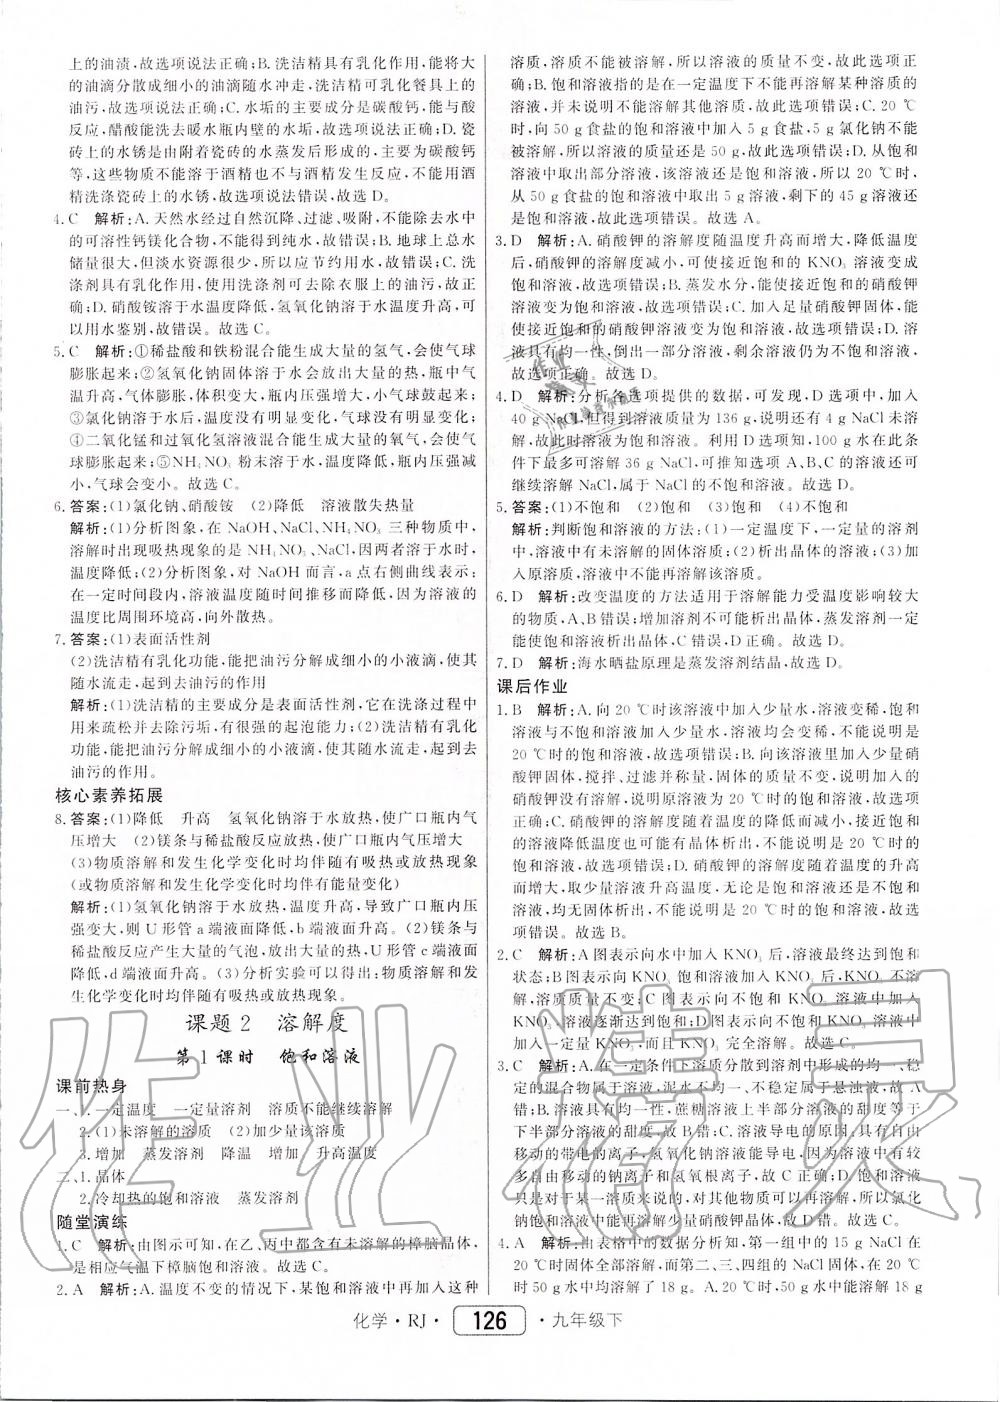 上的油渍，故选项说法正确；B.洗洁精具有乳化作用，能将大
的油滴分散成细小的油滴随水冲走，洗洁精可乳化餐具上的
油污，故选项说法正确；C.水垢的主要成分是碳酸钙，能与酸
反应，醋酸能洗去暖水瓶内壁的水垢，故选项说法正确；D.瓷
砖上的水锈是由附着瓷砖的水蒸发后形成的，主要为碳酸钙
等，这些物质不能溶于酒精也不与酒精发生反应，不能用酒
精洗涤瓷砖上的水锈，故选项说法错误，故选D。
4.C 解析：A.天然水经过自然沉降、过滤、吸附，不能除去水中
的可溶性钙镁化合物，不能得到纯水，故错误；B.地球上总水
储量很大，但淡水资源很少，所以应节约用水，故错误；C.洗
涤剂具有乳化作用，使用洗涤剂可去除衣服上的油污，故正
确；D.硝酸铵溶于水温度降低，氢氧化钠溶于水温度升高，可
以用水鉴别，故错误。故选C。
5.C 解析：①稀盐酸和铁粉混合能生成大量的氢气，会使气球
膨胀起来；②氢氧化钠固体溶于水会放出大量的热，瓶中气
温升高，气体膨胀，体积变大，瓶内压强增大，小气球鼓起来；
③氯化钠溶于水后，温度没有明显变化，气球没有明显变化；
④二氧化锰和过氧化氢溶液混合能生成大量的氧气，会使气
球膨胀起来；⑤NH₄NO₃粉末溶于水，温度降低，瓶内压强减
小，气球会变小。故选C。
6.答案：(1)氯化钠、硝酸铵 (2)降低 溶液散失热量
解析：(1)分析图象，在NaOH、NaCl、NH₄NO₃三种物质中，
溶解时出现吸热现象的是NH₄NO₃、NaCl，因两者溶于水时，
温度降低；(2)分析图象，对NaOH而言，a点右侧曲线表示：
在一定时间段内，溶液温度随时间推移而降低，因为溶液的
温度比周围环境高，向外散热。
7.答案：(1)表面活性剂
(2)洗洁精有乳化功能，能把油污分解成细小的小液滴，使其
随水流走，起到去油污的作用
解析：(1)洗洁精的主要成分是表面活性剂，它在洗涤过程中
用来疏松并去除污垢，有很强的起泡能力；(2)洗洁精有乳化
功能，能把油污分解成细小的小液滴，使其随水流走，起到去
油污的作用。
核心素养拓展
8.答案：(1)降低 升高 氢氧化钠溶于水放热，使广口瓶内气
压增大 (2)镁条与稀盐酸反应放热，使广口瓶内气压增大
(3)物质溶解和发生化学变化时均伴随有吸热或放热现象
(或物质溶解和发生化学变化时均伴有能量变化)
解析：(1)氢氧化钠溶于水放热，温度升高，导致广口瓶内压
强变大，则U形管中a端液面降低，b端液面升高。(2)镁条与
稀盐酸反应产生大量的气泡，放出大量的热，U形管c端液面
降低，d端液面升高。(3)分析实验可以得出：物质溶解和发
生化学变化时均伴随有吸热或放热现象。
课题2 溶解度
第1课时 饱和溶液
课前热身
一、1.一定温度 一定量溶剂 溶质不能继续溶解
2.(1)未溶解的溶质 (2)加少量该溶质
3.增加 蒸发溶剂 降温 增加 升高温度
二、1.晶体
2.冷却热的饱和溶液 蒸发溶剂
随堂演练
1.C 解析：由图示可知，在乙、丙中都含有未溶解的樟脑晶体，
是相应气温下樟脑饱和溶液。故选C。
2.A 解析：A.温度不变的情况下，某饱和溶液中再加入这种
溶质，溶质不能被溶解，所以溶液的质量不变，故此选项正
确；B.饱和溶液指的是在一定温度下不能再溶解某种溶质的
溶液，并未说明不能溶解其他溶质，故此选项错误；C.20 ℃
时，向50 g食盐的饱和溶液中加入5 g食盐，5 g氯化钠不能
被溶解，所以溶液的质量还是50 g，故此选项错误；D.从饱和
溶液中取出部分溶液，该溶液还是饱和溶液，所以20 ℃时，
从50 g食盐的饱和溶液中取出5 g溶液，剩下的45 g溶液还
是饱和溶液，故此选项错误。故选A。
3.D 解析：A.硝酸钾的溶解度随温度升高而增大，降低温度
后，硝酸钾的溶解度减小，可使接近饱和的KNO₃溶液变成
饱和溶液，故选项错误；B.蒸发水分，能使接近饱和的硝酸钾
溶液变为饱和溶液，故选项错误；C.加入足量硝酸钾固体，能
使接近饱和的硝酸钾溶液变为饱和溶液，故选项错误；D.溶
液具有均一性，倒出一部分溶液，剩余溶液仍为不饱和溶液，
故选项正确。故选D。
4.D 解析：分析各选项提供的数据，可发现，D选项中，加入
40 g NaCl，但得到溶液质量为136 g，说明还有4 g NaCl未溶
解，故此时溶液为饱和溶液。利用D选项可知，100 g水在此条
件下最多可溶解36 g NaCl，可推知选项A、B、C的溶液还可
继续溶解NaCl，属于NaCl的不饱和溶液。故选D。
5.答案：(1)不饱和 (2)饱和 (3)饱和 (4)不饱和
解析：判断饱和溶液的方法：(1)一定温度下，一定量的溶剂
中，溶液中有未溶解的固体溶质；(2)析出晶体的溶液；(3)加
入原溶质，溶液中不能再溶解该溶质。
6.D 解析：改变温度的方法适用于溶解能力受温度影响较大
的物质，A、B错误；增加溶剂不可能析出晶体，蒸发溶剂一定
能使饱和溶液析出晶体，C错误，D正确。故选D。
7.D 解析：海水晒盐原理是蒸发溶剂结晶，故选D。
课后作业
1.B 解析：A.向20 ℃时该溶液中加入少量水，溶液变稀，饱和
溶液与不饱和溶液加入少量水，溶液均会变稀，不能说明是
20 ℃时的饱和溶液，故选项错误；B.向该溶液里加入少量硝
酸钾固体，搅拌、过滤并称量，固体的质量不变，说明硝酸
钾没有溶解，说明原溶液为20 ℃时的饱和溶液，故选项正
确；C.硝酸钾的溶解度随着温度的降低而减小，接近饱和
的溶液降低温度也可能有晶体析出，不能说明是20 ℃时的
饱和溶液，故选项错误；D.硝酸钾的溶解度随着温度的升高
而增大，取少量溶液升高温度，无论是饱和溶液还是不饱和
溶液，均无固体析出，不能说明是20 ℃时的饱和溶液，故选项
错误。故选B。
2.C 解析：A图表示向水中加入KNO₃后，溶液最终达到饱和
状态；B图表示向KNO₃饱和溶液加入KNO₃后，KNO₃不溶
解，溶质质量分数不变；C图表示向不饱和KNO₃溶液中加入
KNO₃，溶液逐渐达到饱和；D图表示向不饱和KNO₃溶液中
加入一定量KNO₃，而且KNO₃完全溶解。故选C。
3.C 解析：A.在一定条件下溶质分散到溶剂中形成的均一、稳
定的混合物属于溶液，泥水不均一、不稳定属于悬浊液，故A
错；B.溶液具有均一性，蔗糖溶液上半部分溶液的甜度等于
下半部分溶液的甜度，故B错；C.溶液导电的原因，具有自由
移动的带电的离子，氢氧化钠溶液能导电，因为溶液中含有
自由移动的钠离子和氢氧根离子，故C正确；D.饱和溶液
只是对某一溶质来说的，对其他物质可以再溶解，所以氯化
钠饱和溶液中加入少量硝酸钾晶体，硝酸钾能溶解。故选C。
4.A 解析：由表格中的数据分析知，第一组中的15 g NaCl在
20 ℃时固体全部溶解，而第二、三、四组的NaCl固体，在
20 ℃时50 g水中均溶解了18 g。A.20 ℃时，50 g水中溶解18 g
化学·RJ· 126 ·九年级下
作业精灵